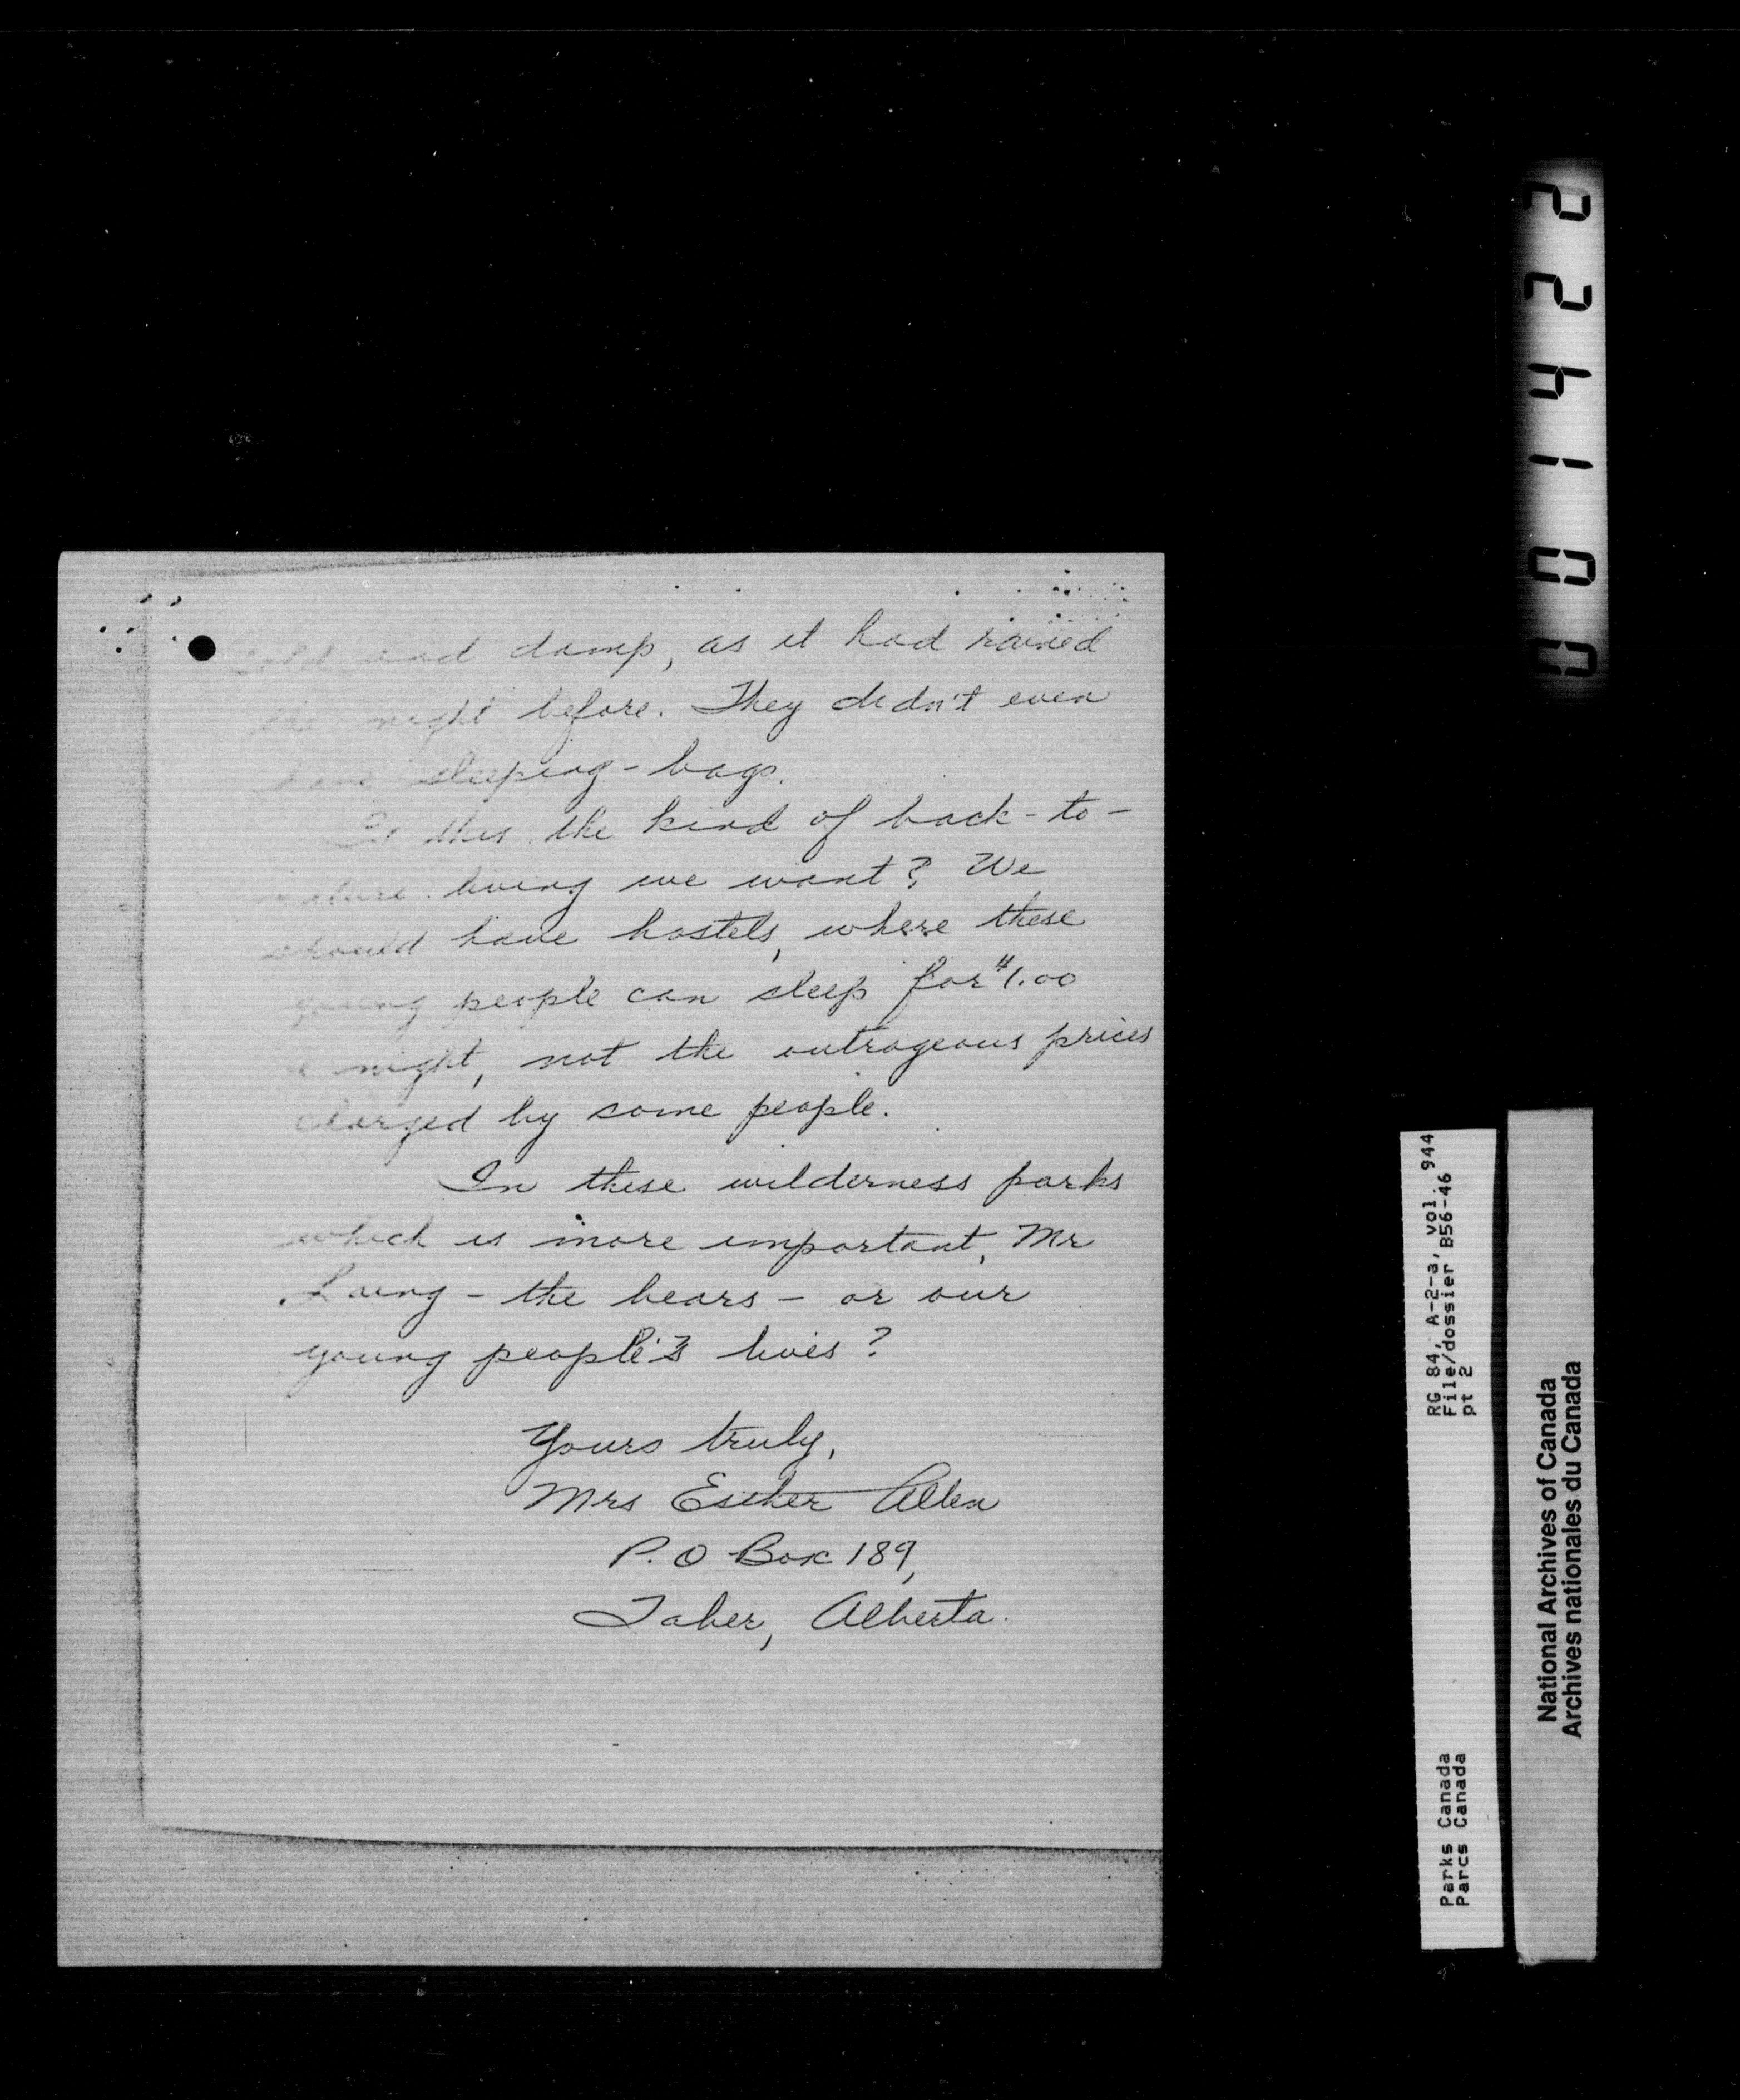 cold and damp, as it had rained
the night before. They didn't even
have sleeping-bags.
Is this the kind of back-to-
nature living we want? We
should have hostels, where these
young people can sleep for $1.00
a night, not the outrageous prices
charged by some people.
In these wilderness parks
which is more important, Mr
Laing - the bears - or our
young people's lives?
Yours truly,
Mrs Esther Allen
P.O Box 189,
Taber, Alberta.
224100
RG 84, A-2-a, vol. 944
File/dossier B56-46
pt 2
Parks Canada
Parcs Canada
National Archives of Canada
Archives nationales du Canada